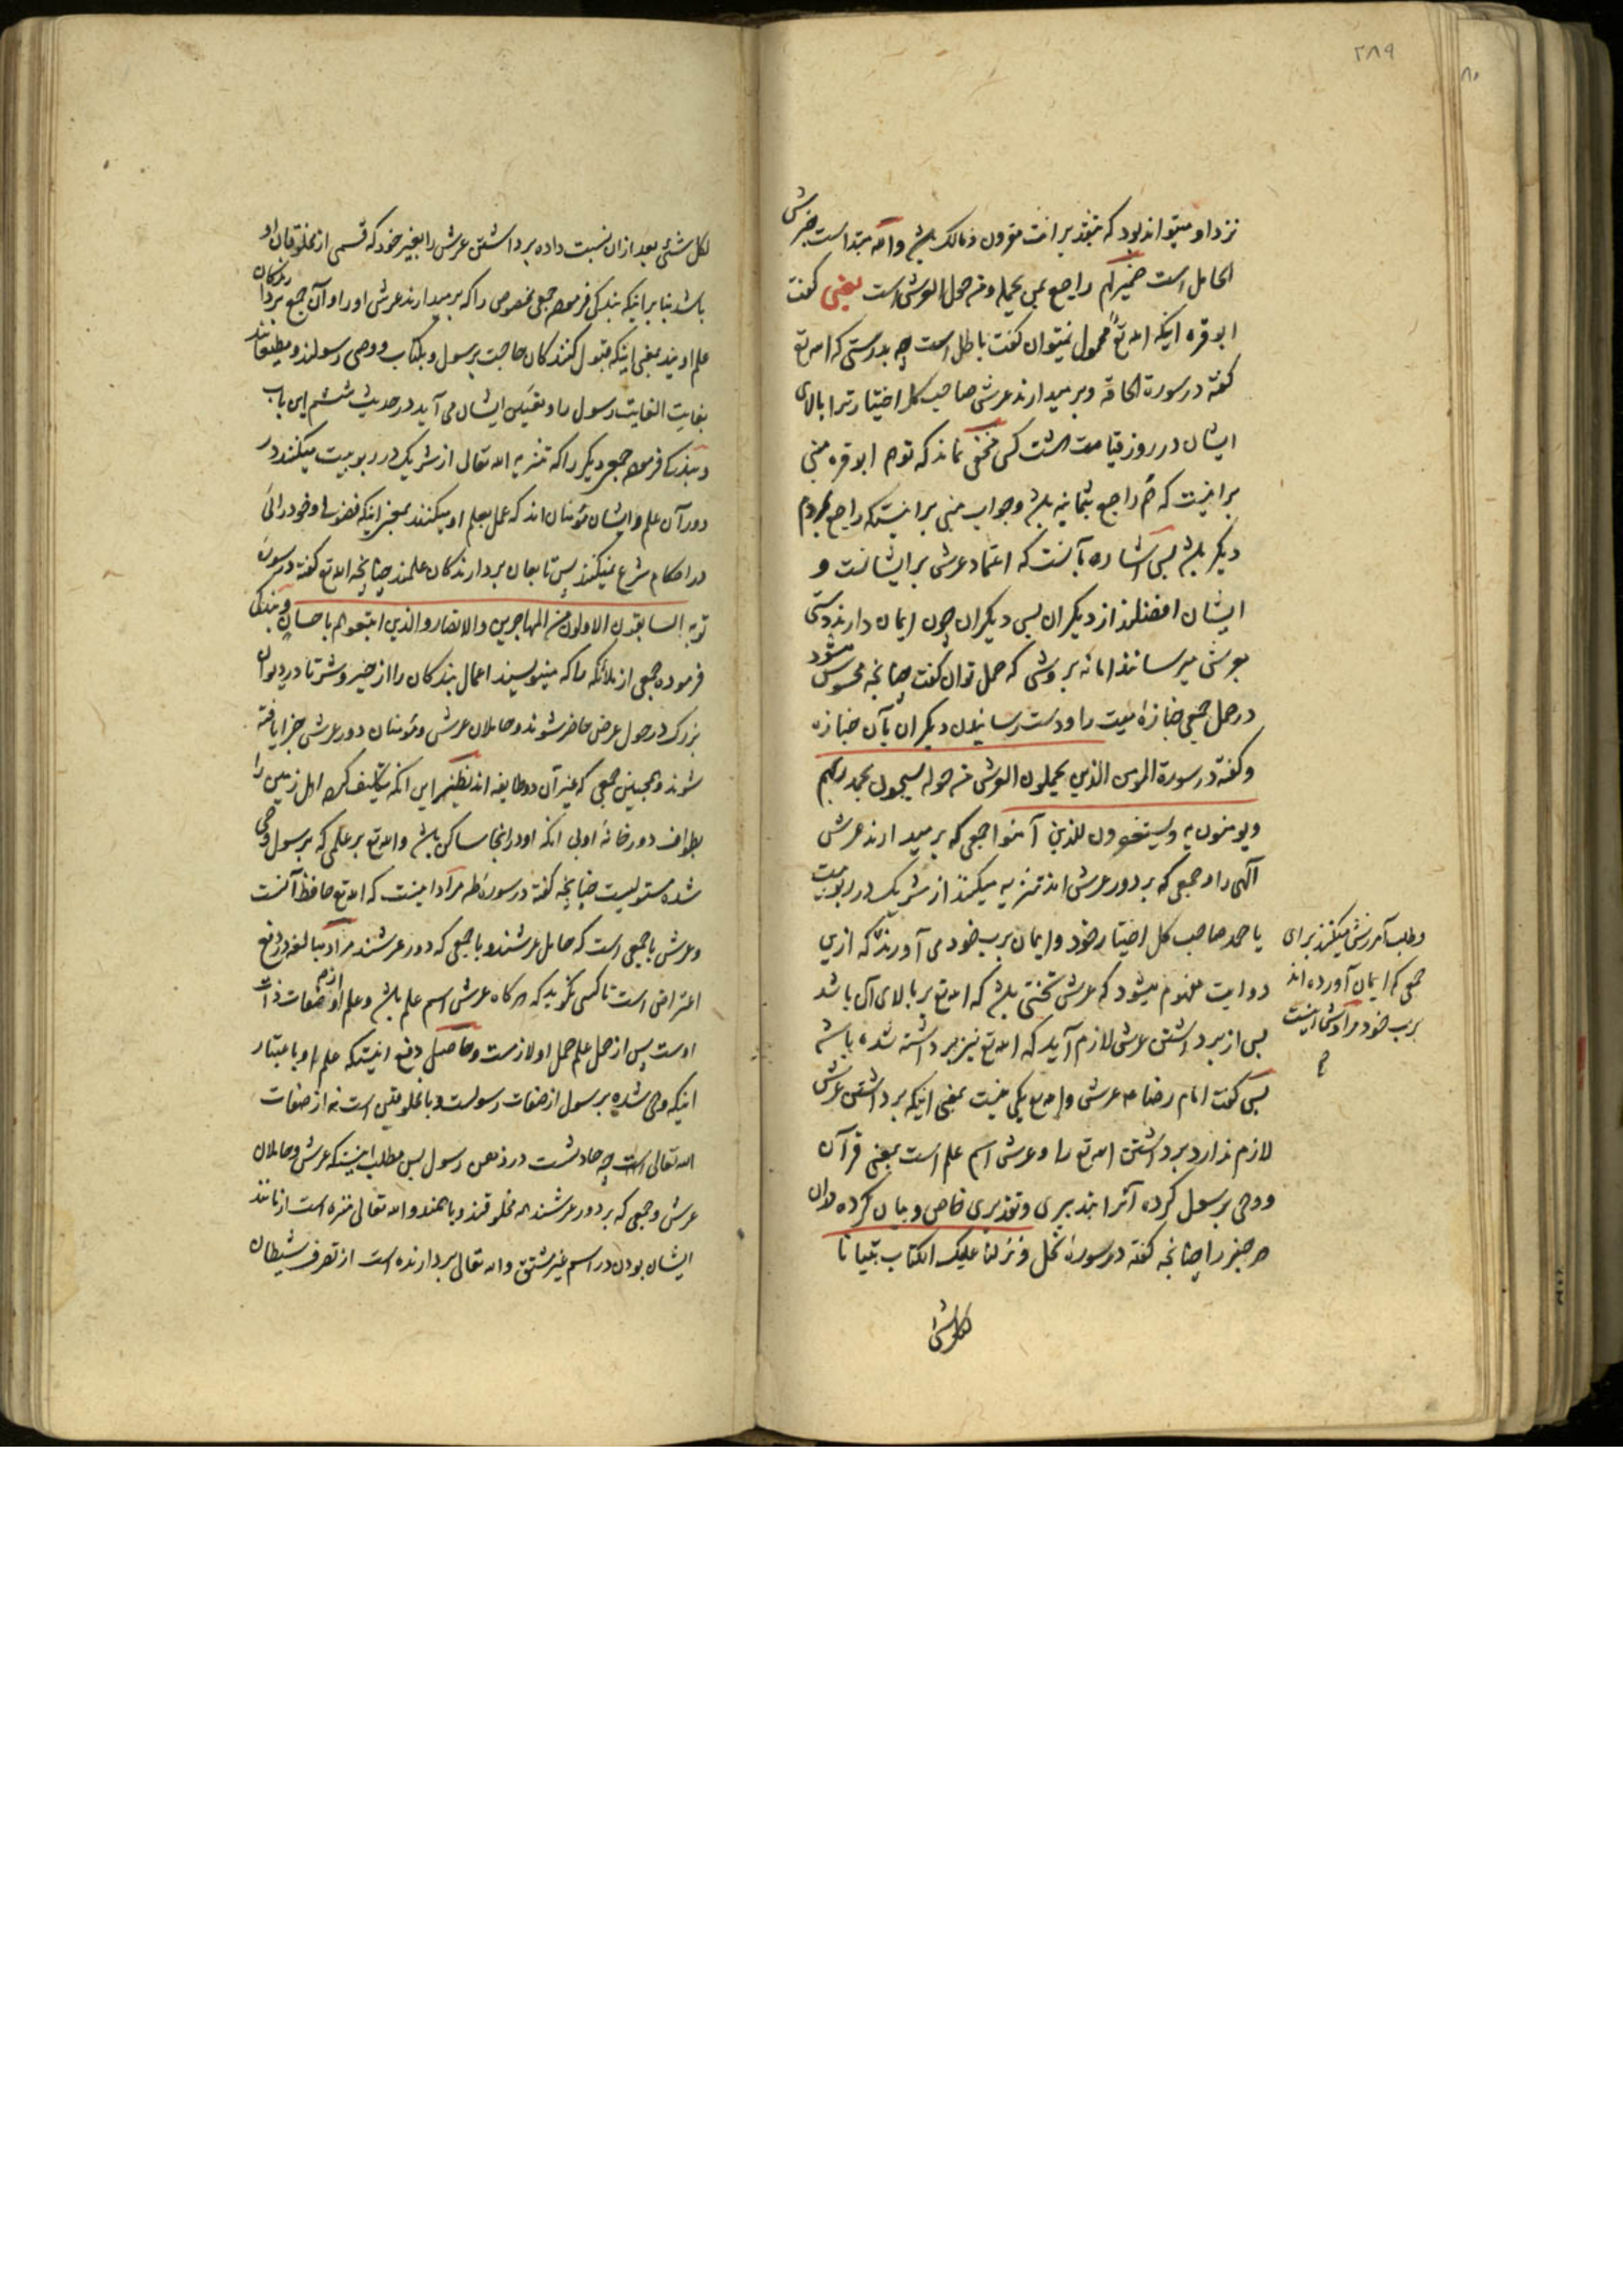 ۲۸۹
نزد او میتواند بود که بتقدیر انت مقرون و مالک باشد و الله مبتداست خبرش
الحامل است ضمیر هم راجع بمن یحمله و من حول العرش است یعنی گفت
ابو قره اینکه الله تع محمول نمیتوان گفت باطل است چه بدرستی که الله تع
گفته در سورة الحاقه و بر میدارند عرش صاحب کل اختیار ترا بالای
ایشان در روز قیامت هشت کس مخفی نماند که توهم ابو قره مبنی
بر اینست که هم راجع بثمانیه باشد و جواب مبنی بر اینستکه راجع بمردم
دیگر باشد پس اشاره بآنست که اعتماد عرش بر ایشانست و
ایشان افضلند از دیگران پس دیگران چون ایمان دارند دستی
بعرش میرسانند اما نه بروشی که حمل توان گفت چنانچه محسوس میشود
در حمل جمعی جنازۀ میت را و دست رسانیدن دیگران بآن جنازه
و گفته در سورة المومن الذین یحملون العرش و من حوله یسبحون بحمد ربهم
و یومنون به و یستغفرون للذین آمنوا جمعی که بر میدارند عرش
الهی را و جمعی که بر دور عرش اند تنزیه میکنند از شریک در ربوبیت
با حمد صاحب کل اختیار خود و ایمان برب خود می آورند که ازین
دو ایت مفهوم میشود که عرش تختی باشد که الله تع بر بالای آن باشد
پس از برداشتن عرش لازم آید که الله تع نیز برداشته شده باشد
پس گفت امام رضا ع عرش و الله تع یکی نیست بمعنی اینکه برداشتن عرش
لازم ندارد برداشتن الله تع را و عرش اسم علم است بمعنی قرآن
و وحی برسول کرده آنرا بتدبیری و تقدیری خاص و بیان کرده در آن
هر چیز را چنانچه گفته در سورۀ نحل و نزلنا علیک الکتاب تبیانا
لکل شئ
و طلب آمرزش میکنند برای
جمعی که ایمان آورده اند
برب خود مرادش اینست
لکل شئ بعد از ان نسبت داده برداشتن عرش را بغیر خود که قسمی از مخلوقان او
باشد بنا بر اینکه بندگی فرموده جمعی مخصوص را که بر میدارند عرش او را و آن جمع بردارندگان
علم اویند بمعنی اینکه قبول کنندگان حاجت برسول و بکتاب و وحی رسولند و مطیعانند
بغایت الغایت رسول را و تعیین ایشان می آید در حدیث ششم این باب
و بندگی فرموده جمعی دیگر را که تنزیه الله تعالی از شریک در ربوبیت میکنند در
دور آن علم و ایشان مؤمنان اند که عمل بعلم او میکنند بمعنی اینکه
در احکام شرع نمیکنند پس تابعان بردارندگان علمند چنانچه الله تع گفته در سورۀ
توبه السابقون الاولون من المهاجرین والانصار والذین اتبعوهم باحسان و بندگی
فرموده جمعی از ملائکه را که مینویسند اعمال بندگان را از خیر و شر تا در دیوان
بزرگ در حول عرش حاضر شوند و حاملان عرش و مؤمنان دور عرش جزا یافته
شوند و همچنین جمعی که غیر آن دو طایفه اند نظیر این انکه تکلیف کرده اهل زمین را
بطواف دور خانه اولی انکه او در انجا ساکن باشد و الله تع بر علمی که برسول وحی
شده مستولیست چنانچه گفته در سورۀ طه مراد اینست که الله تع حافظ آنست
و عرش با جمعی است که حامل عرشند و با جمعی که دور عرشند مراد مبالغه در دفع
اعتراض است تا کسی نگوید که هر گاه عرش اسم علم باشد و علم او از صفات ذات
اوست پس از حمل علم حمل او لازمست و حاصل دفع اینستکه علم او باعتبار
اینکه وحی شده برسول از صفات رسولست و با مخلوقین است نه از صفات
الله تعالی است چه حادثست در ذهن رسول پس مطلب اینستکه عرش و حاملان
عرش و جمعی که بر دور عرشند همه مخلوقند و با همند و الله تعالی منزه است از مانند
ایشان بودن در اسم غیر مشتق و الله تعالی بردارنده است از تصرف شیطان